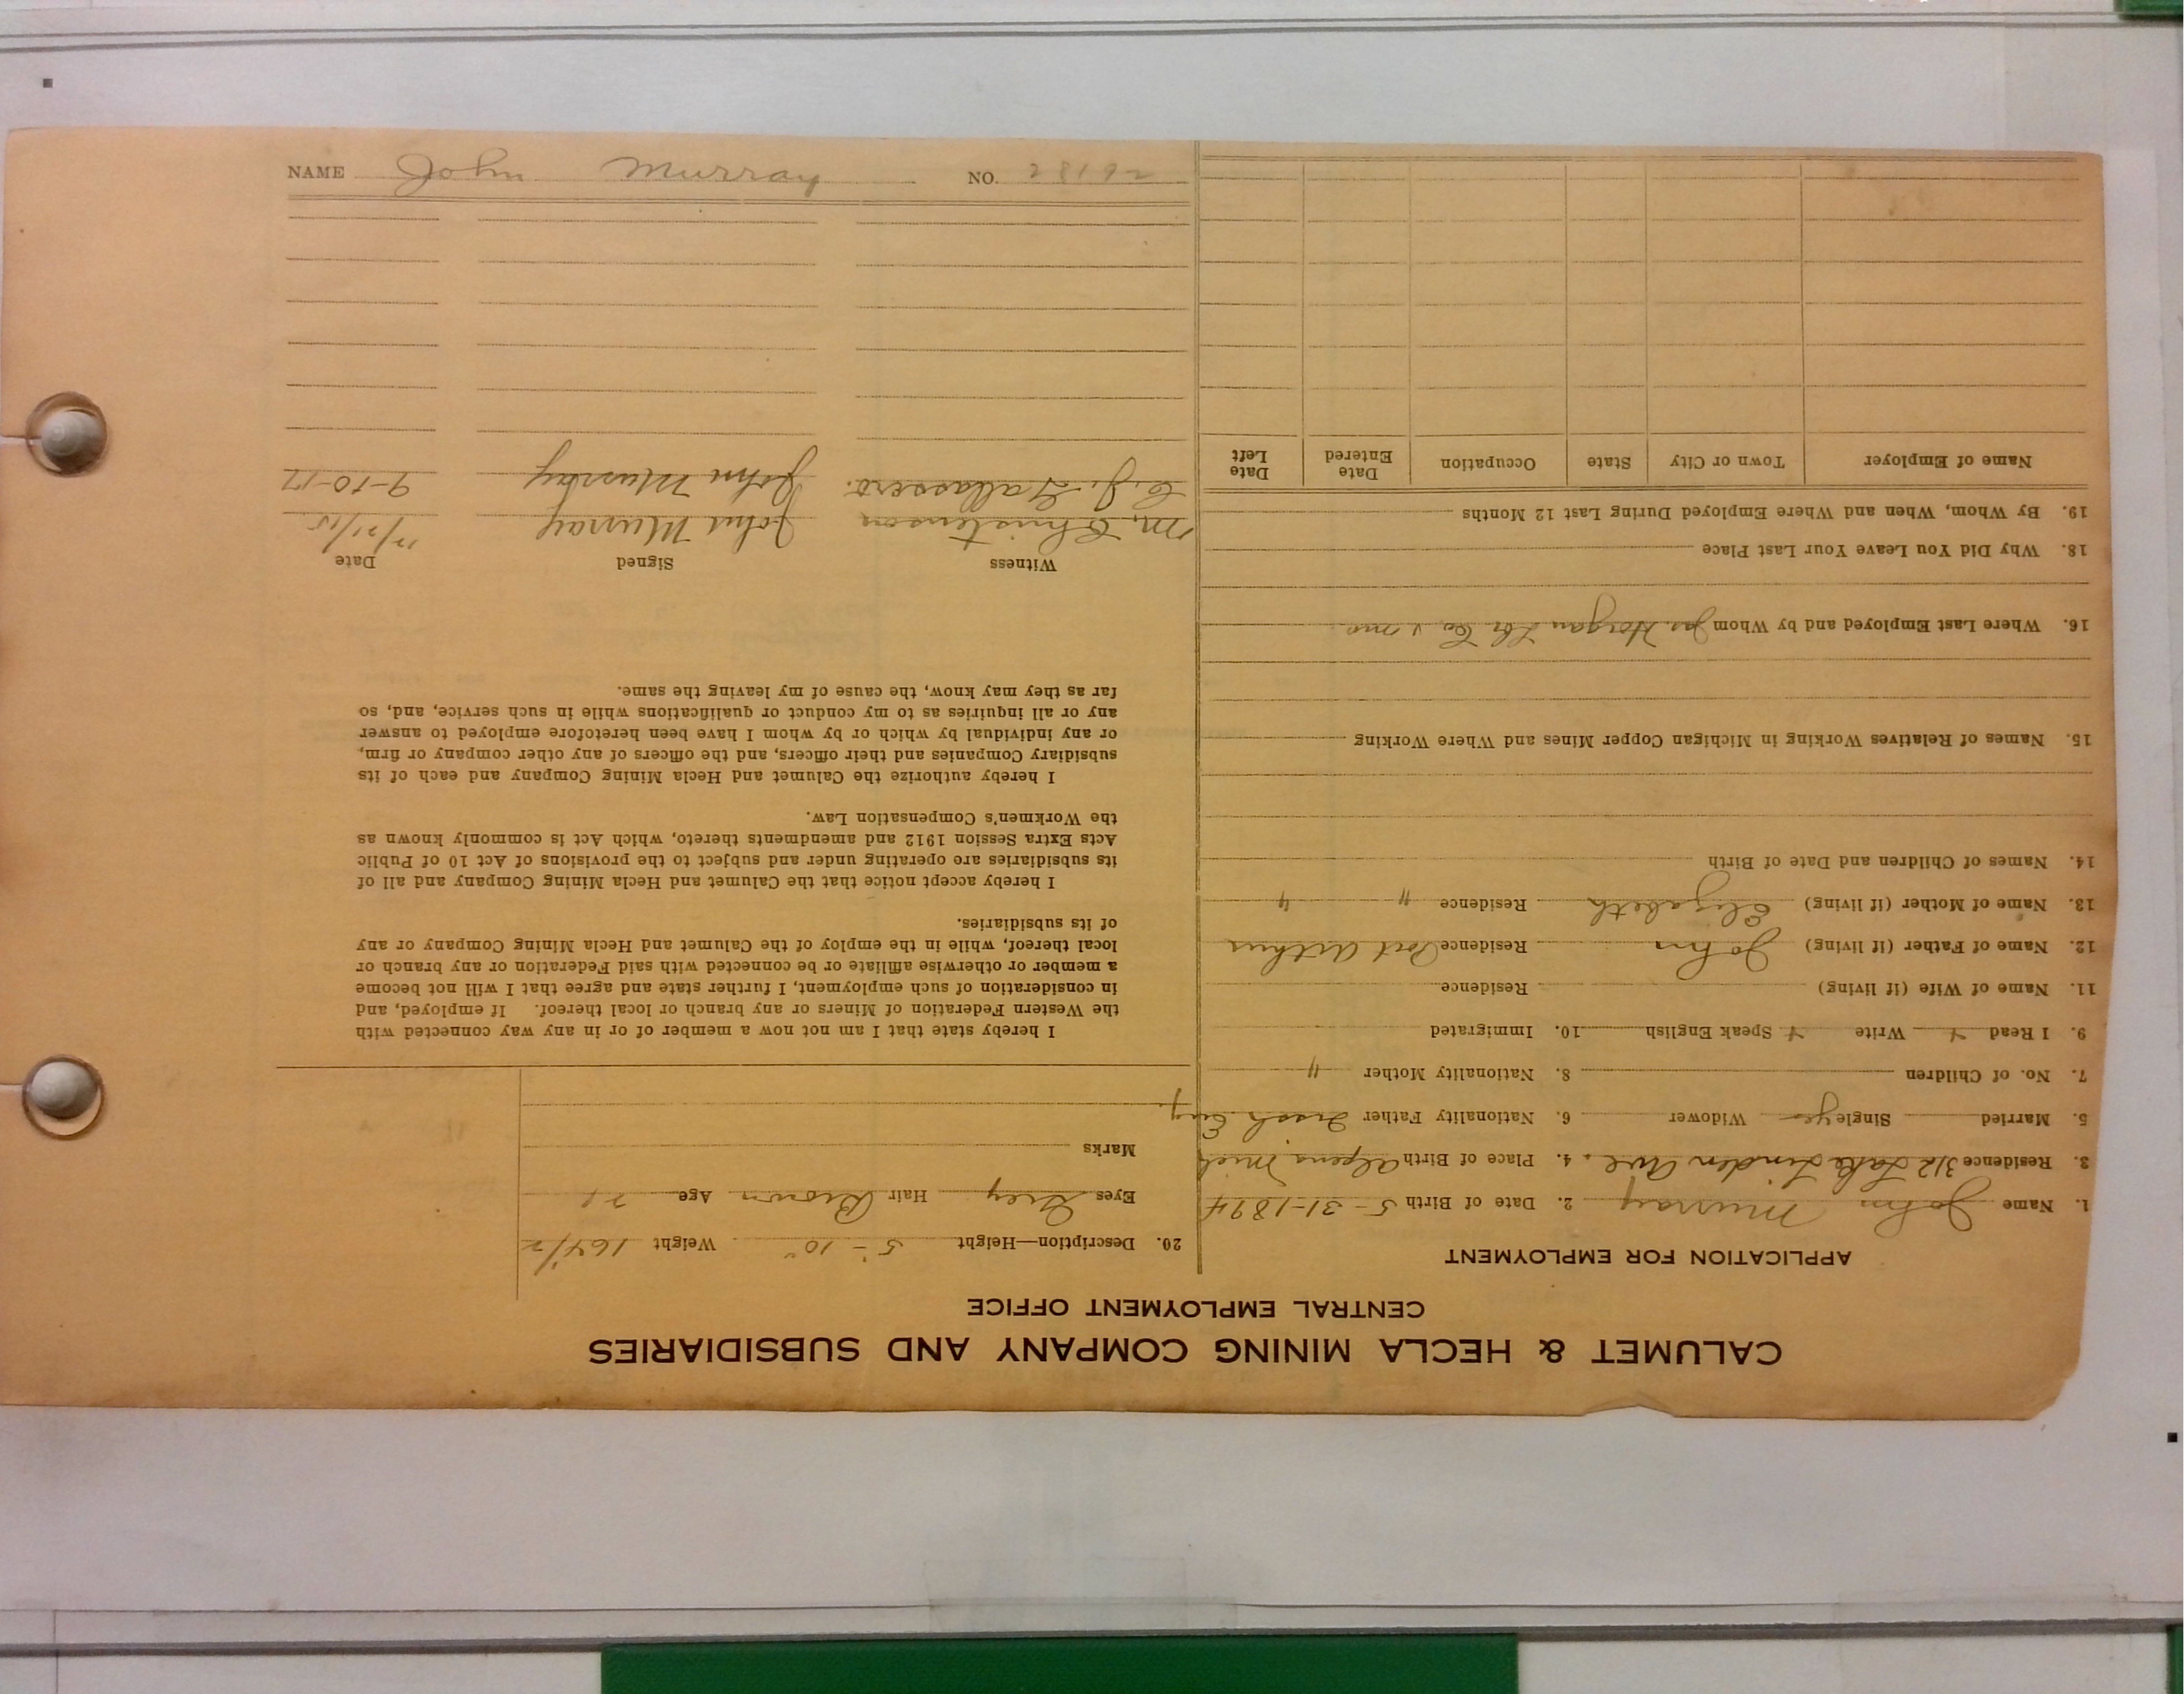 CALUMET & HECLA MINING COMPANY AND SUBSIDIARIES
CENTRAL EMPLOYMENT OFFICE
APPLICATION FOR EMPLOYMENT
1. Name John Murray 2. Date of Birth 5-31-1894
3. Residence 312 Lake Linden Ave. 4. Place of Birth Alpena Mich
5. Married Single yes Widower 6. Nationality Father Irish Eng
7. No. of Children 8. Nationality Mother "
9. I Read Write Speak English 10. Immigrated
11. Name of Wife (if living) Residence
12. Name of Father (if living) John Residence Port Arthur
13. Name of Mother (if living) Elizabeth Residence " "
14. Names of Children and Date of Birth
15. Names of Relatives Working in Michigan Copper Mines and Where Working
16. Where Last Employed and by Whom Jas. Horgan
18. Why Did You Leave Your Last Place
19. By Whom, When and Where Employed During Last 12 Months
Name of Employer Town or City State Occupation Date Entered Date Left
20. Description—Height 5'-10" Weight 164 1/2
Eyes Grey Hair Brown Age 21
Marks
I hereby state that I am not now a member of or in any way connected with
the Western Federation of Miners or any branch or local thereof. If employed, and
in consideration of such employment, I further state and agree that I will not become
a member or otherwise affiliate or be connected with said Federation or any branch or
local thereof, while in the employ of the Calumet and Hecla Mining Company or any
of its subsidiaries.
I hereby accept notice that the Calumet and Hecla Mining Company and all of
its subsidiaries are operating under and subject to the provisions of Act 10 of Public
Acts Extra Session 1912 and amendments thereto, which Act is commonly known as
the Workmen's Compensation Law.
I hereby authorize the Calumet and Hecla Mining Company and each of its
subsidiary Companies and their officers, and the officers of any other company or firm,
or any individual by which or by whom I have been heretofore employed to answer
any or all inquiries as to my conduct or qualifications while in such service, and, so
far as they may know, the cause of my leaving the same.
Witness Signed Date
M. Christenson John Murray
C. J. John Murray 9-10-17
NAME John Murray NO. 28192